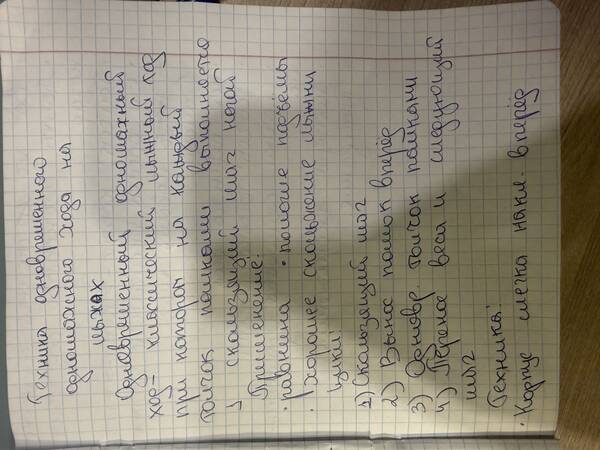 Техника одновременного
одношажного хода на
лыжах
Одновременный одношажный
ход- классический лыжный ход
при котором на каждый
толчок палками выполняется
1 скользящий шаг ногой
Применение:
· равнина · пологие подъёмы
· хорошее скольжение лыжни
Цикл:
1) Скользящий шаг
2) Вынос палок вперёд
3) Одновр. Толчок палками
4) Перенос веса и следующий
шаг
Техника:
· Корпус слегка накл. вперёд